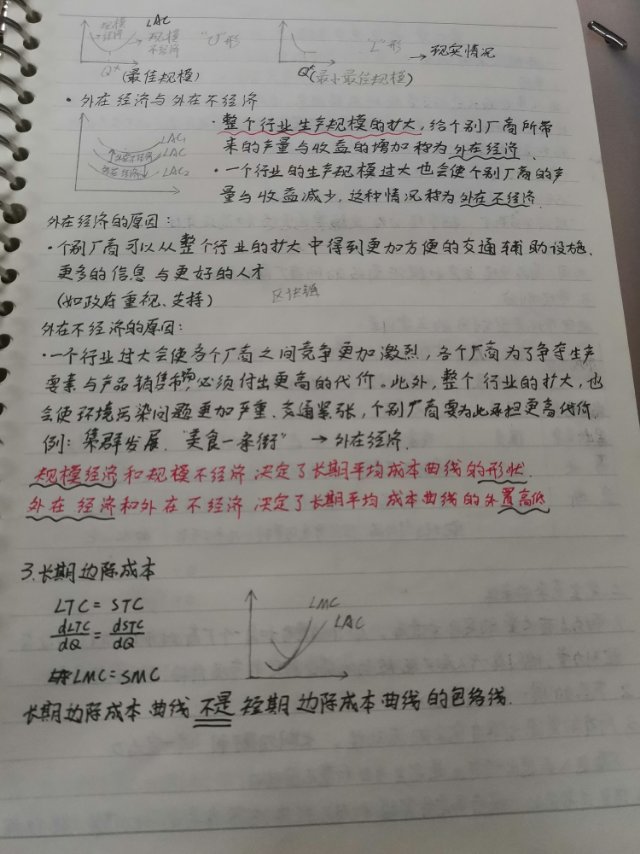 LAC
规模
经济
规模
不经济
"U"形
"L"形
→ 现实情况
Q*
(最佳规模)
Q*
(最小最佳规模)
·外在经济与外在不经济
LAC₁
LAC
LAC₂
外在不经济
外在经济
·整个行业生产规模的扩大,给个别厂商所带
来的产量与收益的增加称为外在经济.
·一个行业的生产规模过大也会使个别厂商的产
量与收益减少,这种情况称为外在不经济.
外在经济的原因:
·个别厂商可以从整个行业的扩大中得到更加方便的交通辅助设施、
更多的信息与更好的人才
(如政府重视、支持)
区块链
外在不经济的原因:
·一个行业过大会使各个厂商之间竞争更加激烈,各个厂商为了争夺生产
要素与产品销售市场,必须付出更高的代价。此外,整个行业的扩大,也
会使环境污染问题更加严重、交通紧张,个别厂商要为此承担更高代价.
例:集群发展."美食一条街" → 外在经济.
规模经济和规模不经济决定了长期平均成本曲线的形状.
外在经济和外在不经济决定了长期平均成本曲线的位置高低
3.长期边际成本
LTC = STC
dLTC/dQ = dSTC/dQ
LMC = SMC
LMC
LAC
长期边际成本曲线不是短期边际成本曲线的包络线.